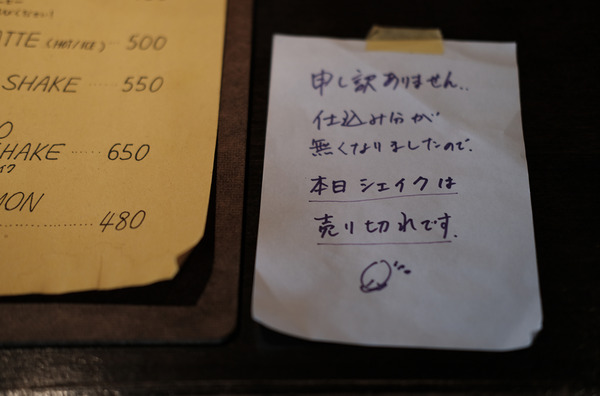 ください!
ATTE (HOT/ICE) 500
SHAKE 550
O
SHAKE ...... 650
イク
MON
480
申し訳ありません..
仕込み分が
無くなりましたので、
本日シェイクは
売り切れです.